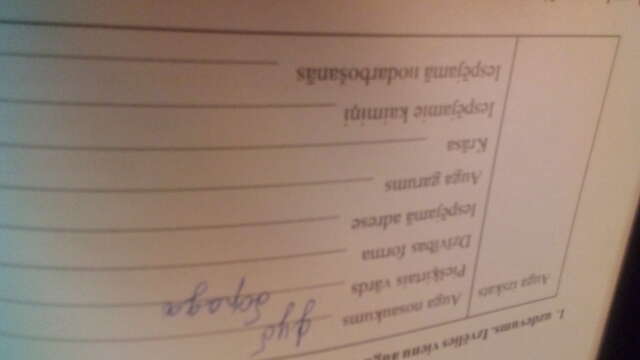 1. uzdevums. Izvēlies vienu
Auga izskats
Auga nosaukums дуб
Piešķirtais vārds борода
Dzīvības forma
Iespējamā adrese
Auga garums
Krāsa
Iespējamie kaimiņi
Iespējamā nodarbošanās